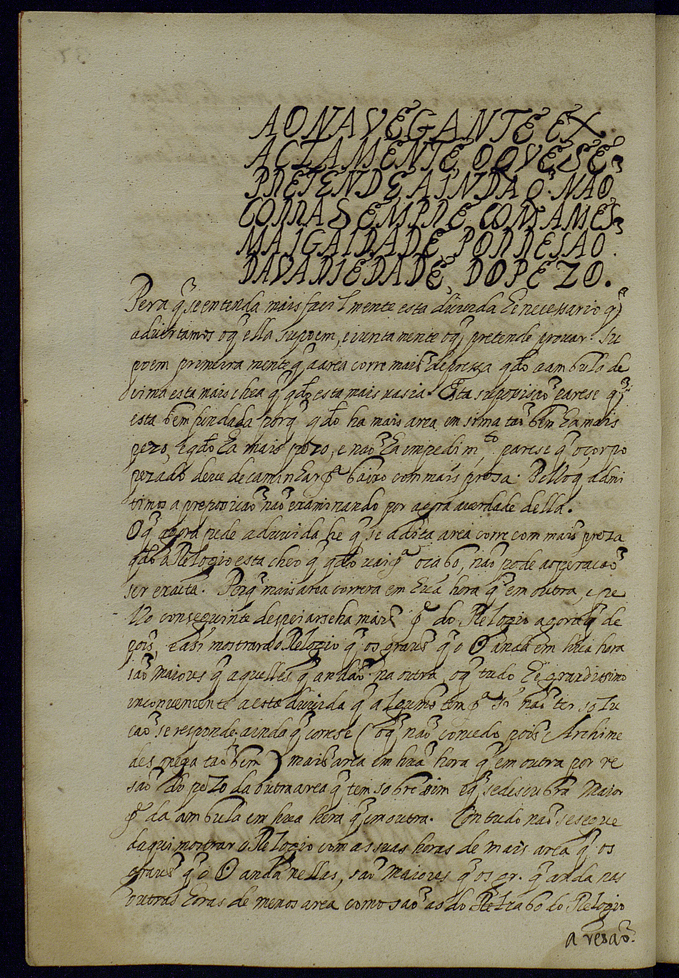 AO NAVEGANTE EX
ACTAMENTE O QVE SE
PRETENDE AINDA Q̃ NAÕ
CORRA SEMPRE COM A MES
MA IGAIRDADE POR RESAÕ
DA VARIEDADE, DO PEZO.
Pera q̃ se entenda mais facilmente esta duuida he necessario q̃
aduertamos oq̃ ella supoem, e iuntamente oq̃ pretende prouar. Su
poem primeira mente q̃ a area corre mais depressa qdo a ambula de
sima esta mais chea q̃ qdo esta mais vasia. Esta suposisaõ parese q̃
esta bem fundada porq̃ qdo ha mais area em sima taõ bem ha mais
pezo, e qdo ha mais pezo, e naõ ha empedimto parese q̃ o corpo
pezado deue de caminhar pª baixo com mais presa. Pello q̃ admi
timos a preposicaõ naõ examinando por agora a uerdade della.
Oq̃ agora pede a duuida he q̃ se a dita area corre com mais presa
qdo o Relogio esta cheo q̃ qdo uai pª o cabo, naõ pode a operacaõ
ser exacta. Porq̃ mais area correra em hua hora q̃ em outra, e pe
llo conseguinte despejarseha mais pte do Relogio agora q̃ de
pois, e asi mostrara o Relogio q̃ os graos q̃ o ☉ anda em hua hora
saõ maiores q̃ aquelles q̃ anda na outra, oq̃ tudo he grandissimo
inconueniente a esta duuida q̃ alguns tem pª si naõ ter solu
caõ se responde, ainda q̃ corese (oq̃ naõ concedo pois Archime
des o nega taõ bem) mais area em hua hora q̃ em outra por re
saõ do pezo da outra area q̃ tem sobre sim e q̃ se descubra maior
pte da ambula em hua hora q̃ em outra. Contudo naõ se segue
daqui mostrar o Relogio com as suas horas de mais area q̃ os
graos q̃ o ☉ anda nellas, saõ maiores q̃ os gr. q̃ anda nas
outras horas de menos area como saõ as do Retrabo do Relogio
a resaõ.